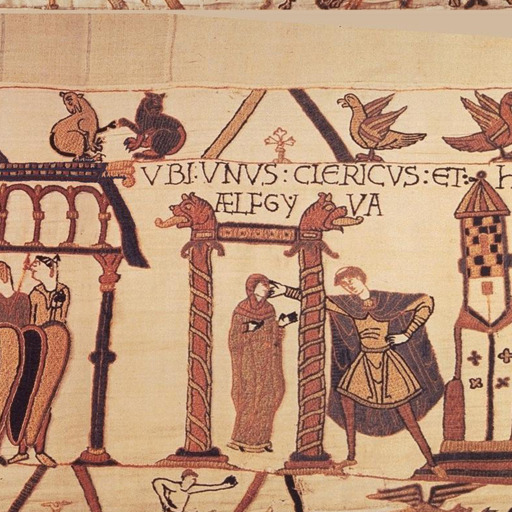 VBI:VNVS:CLERICVS:ET:
ÆLFGY VA